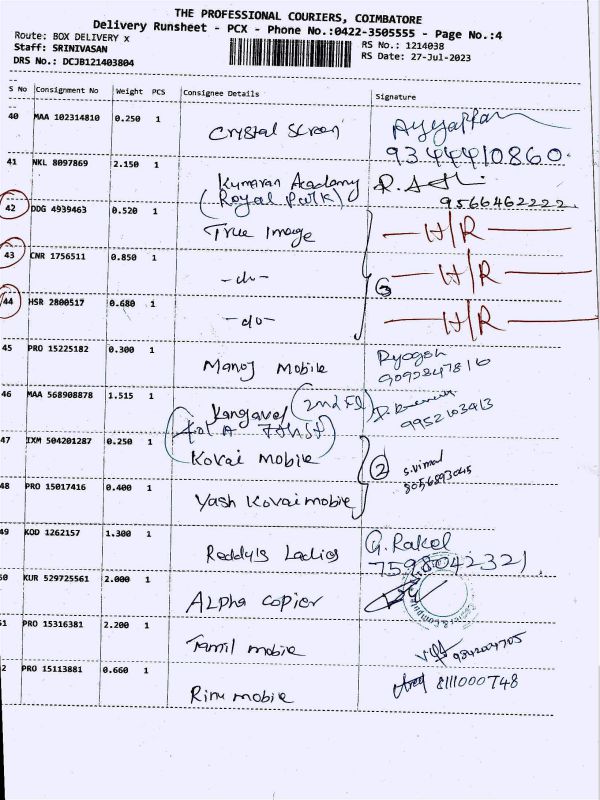 THE PROFESSIONAL COURIERS, COIMBATORE
Delivery Runsheet - PCX - Phone No.:0422-3505555 - Page No.:4
Route: BOX DELIVERY x
RS No.: 1214038
Staff: SRINIVASAN
RS Date: 27-Jul-2023
DRS No.: DCJB121403804
S No Consignment No Weight PCS Consignee Details Signature
40 MAA 102314810 0.250 1 Crystal Screen Ayyappan
9344410860.
41 NKL 8097869 2.150 1 Kumaran Academy
(Royal Park) 9566462222.
42 DDG 4939463 0.520 1 True Image H/R
43 CNR 1756511 0.850 1 -do- 3 H/R
44 HSR 2800517 0.680 1 -do- H/R
45 PRO 15225182 0.300 1 Manoj Mobile
9092847816
46 MAA 568908878 1.515 1 Kangavel (2nd Fl)
9952103913
47 IXM 504201287 0.250 1 Kovai Mobile 2 S.Vimal
8056893045
48 PRO 15017416 0.400 1 Yash Kovai mobile
49 KOD 1262157 1.300 1 Reddyls Ladies G. Rakel
7598042321.
50 KUR 529725561 2.000 1 ALpha Copier
51 PRO 15316381 2.200 1 Tamil mobile
2 PRO 15113881 0.660 1 Rinu mobile 8111000748